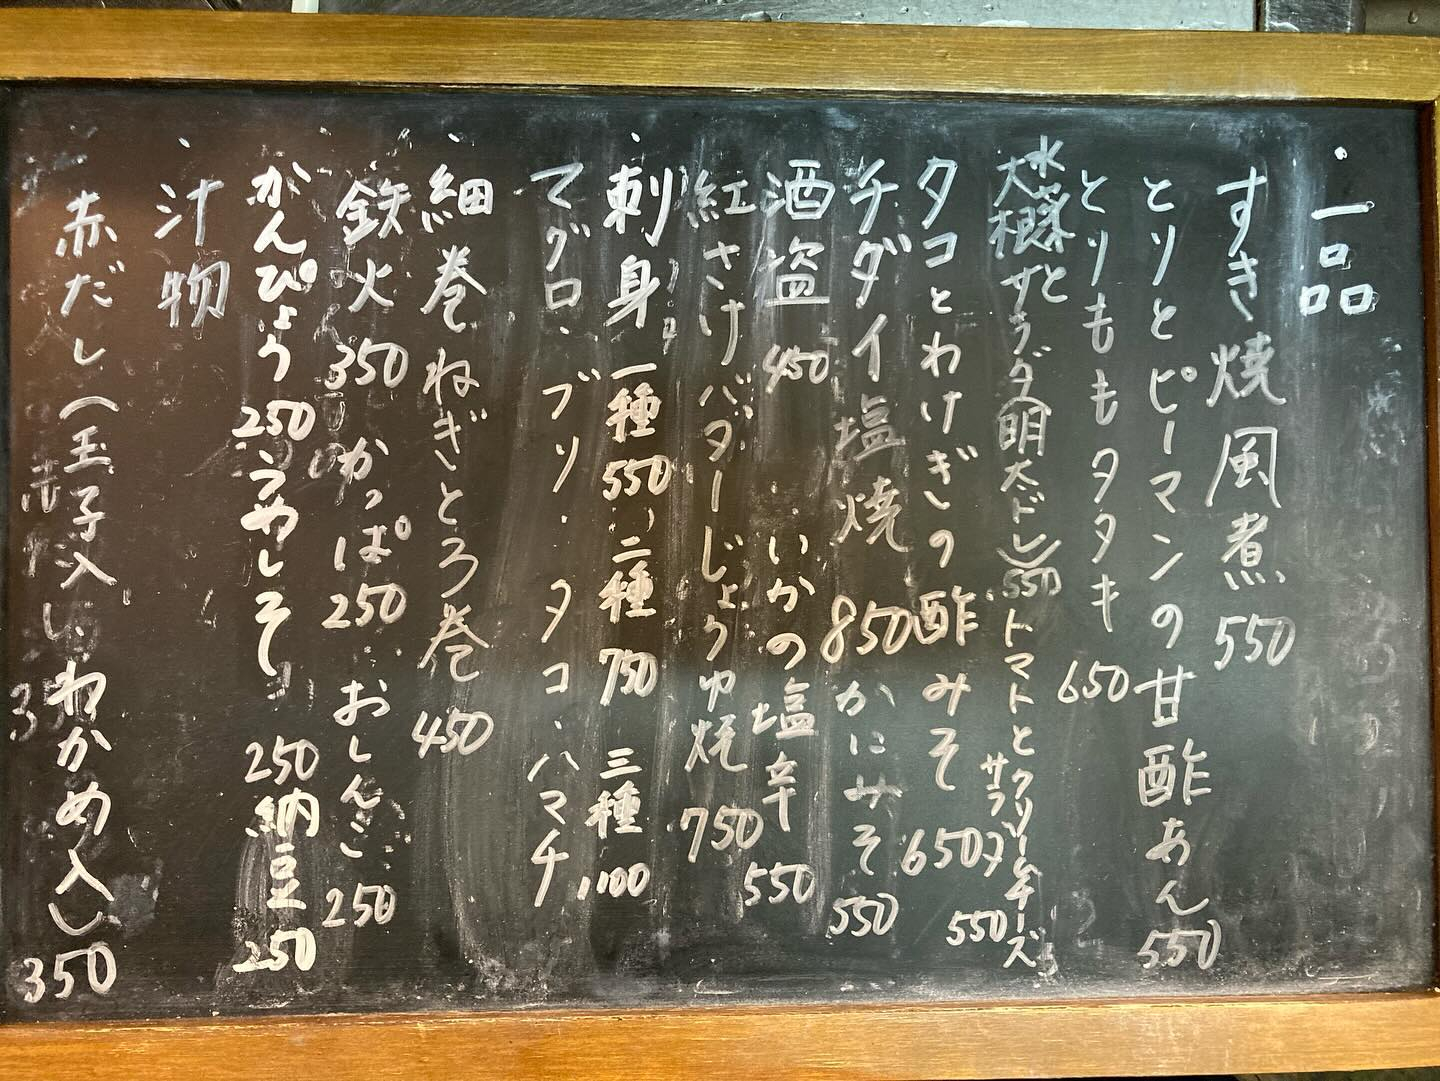 一品
すき焼風煮 550
とりとピーマンの甘酢あん 550
とりももタタキ 650
水菜と大根サラダ(明太ドレ) 550 トマトとクリームチーズサラダ 550
タコとわけぎの酢みそ 650
チダイ塩焼 850 かにみそ 550
酒盗 450 いかの塩辛 550
紅さけバターじょうゆ焼 750
刺身 一種 550 二種 750 三種 1100
マグロ・ブリ・タコ・ハマチ
細巻 ねぎとろ巻 450
鉄火 350 かっぱ 250 おしんこ 250
かんぴょう 250 うめしそ 250 納豆 250
汁物
赤だし(玉子入り、わかめ入り) 350